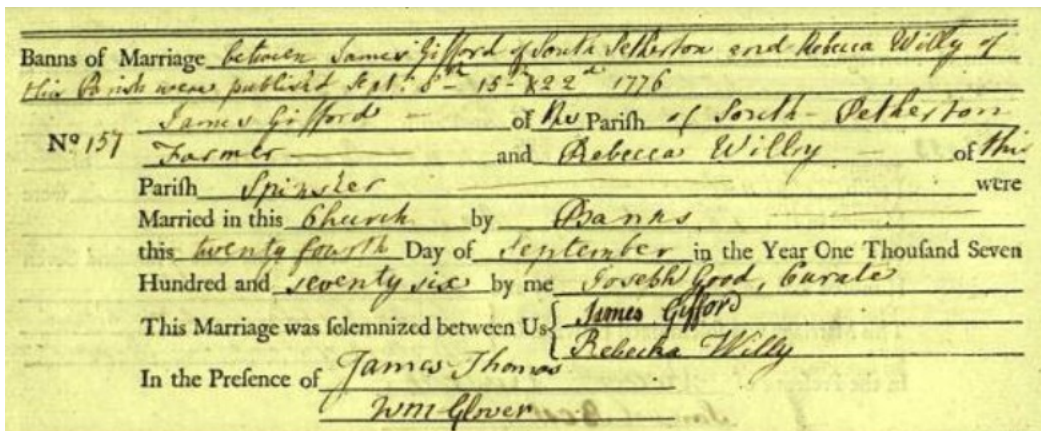 Banns of Marriage between James Gifford of South Petherton and Rebecca Willy of
this Parish were published Sept: 8th 15th & 22d 1776
James Gifford of the Parish of South Petherton
No 157 Farmer and Rebecca Willy of this
Parish Spinster were
Married in this Church by Banns
this twenty fourth Day of September in the Year One Thousand Seven
Hundred and seventy six by me Joseph Good, Curate
This Marriage was solemnized between Us { James Gifford
Rebecka Willy
In the Presence of James Thomas
Wm Glover